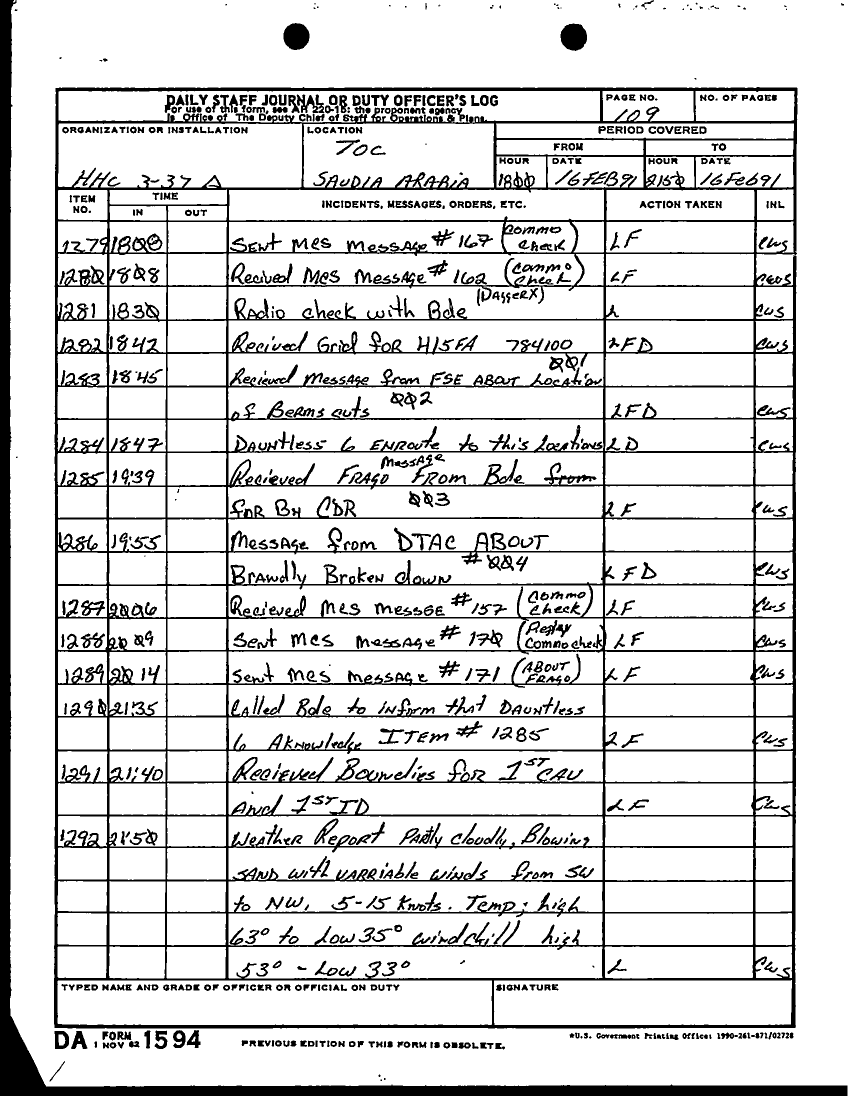 DAILY STAFF JOURNAL OR DUTY OFFICER'S LOG
For use of this form, see AR 220-15: the proponent agency
is Office of The Deputy Chief of Staff for Operations & Plans.
PAGE NO.
109
NO. OF PAGES
ORGANIZATION OR INSTALLATION
HHC 3-37 Δ
LOCATION
TOC
SAUDIA ARABIA
PERIOD COVERED
FROM
TO
HOUR
1800
DATE
16 FEB 91
HOUR
2150
DATE
16 Feb 91
ITEM NO.
TIME
IN
OUT
INCIDENTS, MESSAGES, ORDERS, ETC.
ACTION TAKEN
INL
1279 1800 SENT MCS MESSAGE # 167 (Commo check) LF CWS
1280 1808 Recived MCS MESSAGE # 162 (commo check) LF CWS
1281 1830 RAdio check with Bde (DaggerX) L CWS
1282 1842 Recived Grid for H/5FA 784100 LFD CWS
001
1283 1845 Recieved Message from FSE ABOUT Location
of Berms cuts 002 LFD CWS
1284 1847 DAUNtless 6 ENROUTE to this locations LD CWS
1285 19:39 Recieved FRAGO Message FROM Bde from
for BN CDR 003 LF CWS
1286 19:55 MESSAGE from DTAC ABOUT
Brawdly Broken down #004 LFD CWS
1287 2006 Recieved MCS MESSGE # 157 (Commo check) LF CWS
1288 2009 Sent MCS MESSAGE # 170 (Replay Commo check) LF CWS
1289 2014 Sent MCS MESSAGE # 171 (ABOUT FRAGO) LF CWS
1290 21:35 Called Bde to inform that DAUNtless
6 AKNowledge ITEM # 1285 LF CWS
1291 21:40 Recieved Boundies for 1ST CAV
And 1ST ID LF CWS
1292 21:50 Weather Report PARtly cloudly, Blowing
SAND with VARRIABLE WINDS from SW
to NW, 5-15 Knots. Temp; high
63° to Low 35° windchill high
53° - Low 33° L CWS
TYPED NAME AND GRADE OF OFFICER OR OFFICIAL ON DUTY
SIGNATURE
DA FORM 1594
1 NOV 62
PREVIOUS EDITION OF THIS FORM IS OBSOLETE.
*U.S. Government Printing Office: 1990-261-871/02728